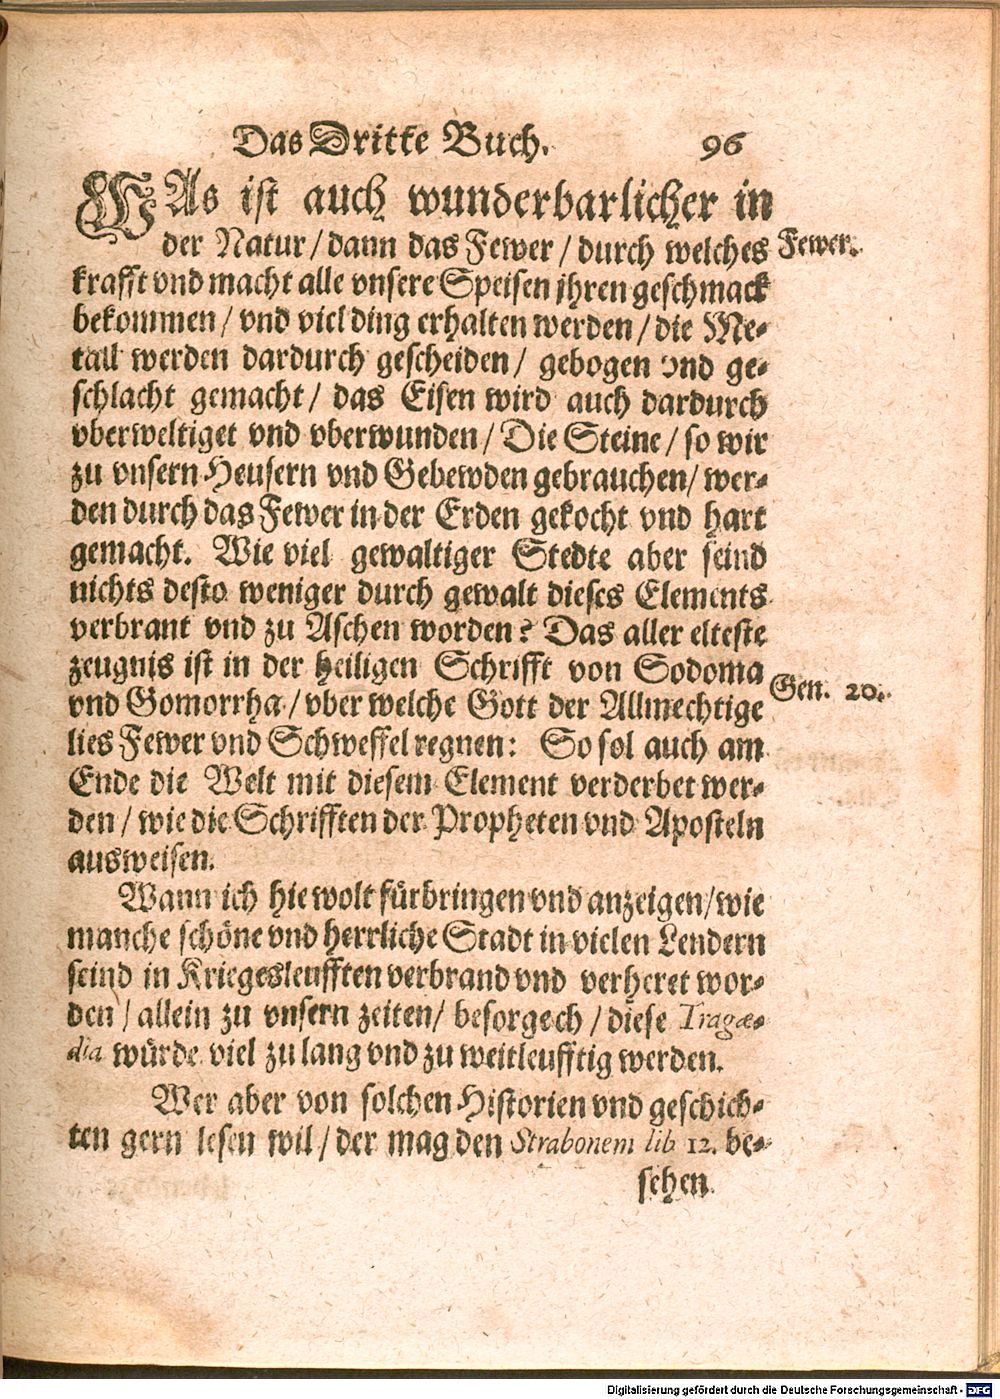 Das Dritte Buch. 96
WAs ist auch wunderbarlicher in
der Natur / dann das Fewer / durch welches
Fewer.
krafft vnd macht alle vnsere Speisen jhren geschmack
bekommen / vnd viel ding erhalten werden / die Me-
tall werden dardurch gescheiden / gebogen vnd ge-
schlacht gemacht / das Eisen wird auch dardurch
vberweltiget vnd vberwunden / Die Steine / so wir
zu vnsern Heusern vnd Gebewden gebrauchen / wer-
den durch das Fewer in der Erden gekocht vnd hart
gemacht. Wie viel gewaltiger Stedte aber seind
nichts desto weniger durch gewalt dieses Elements
verbrant vnd zu Aschen worden? Das aller elteste
zeugnis ist in der heiligen Schrifft von Sodoma
Gen. 20.
vnd Gomorrha / vber welche Gott der Allmechtige
lies Fewer vnd Schweffel regnen: So sol auch am
Ende die Welt mit diesem Element verderbet wer-
den / wie die Schrifften der Propheten vnd Aposteln
ausweisen.
Wann ich hie wolt fürbringen vnd anzeigen / wie
manche schöne vnd herrliche Stadt in vielen Lendern
seind in Kriegesleufften verbrand vnd verheret wor-
den / allein zu vnsern zeiten / besorge ch / diese Tragœ-
dia würde viel zu lang vnd zu weitleufftig werden.
Wer aber von solchen Historien vnd geschich-
ten gern lesen wil / der mag den Strabonem lib 12. be-
sehen.
Digitalisierung gefördert durch die Deutsche Forschungsgemeinschaft - DFG